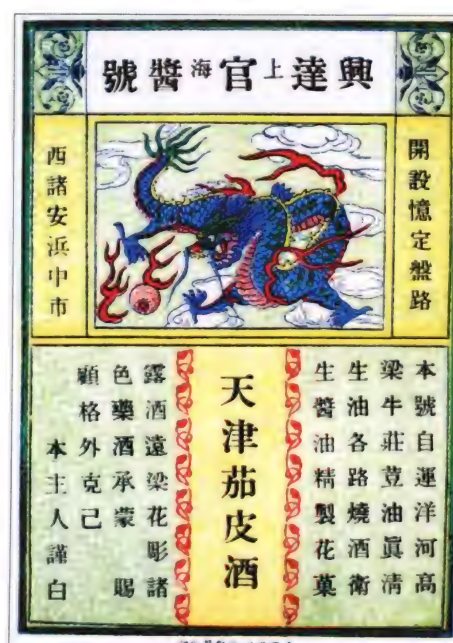 興達上官海醬號
開設憶定盤路
西諸安浜中市
本號自運洋河高
梁牛莊荳油眞清
生油各路燒酒衛
生醬油精製花菓
天津茄皮酒
露酒遠梁花彫諸
色藥酒承蒙 賜
顧格外克己
本主人謹白